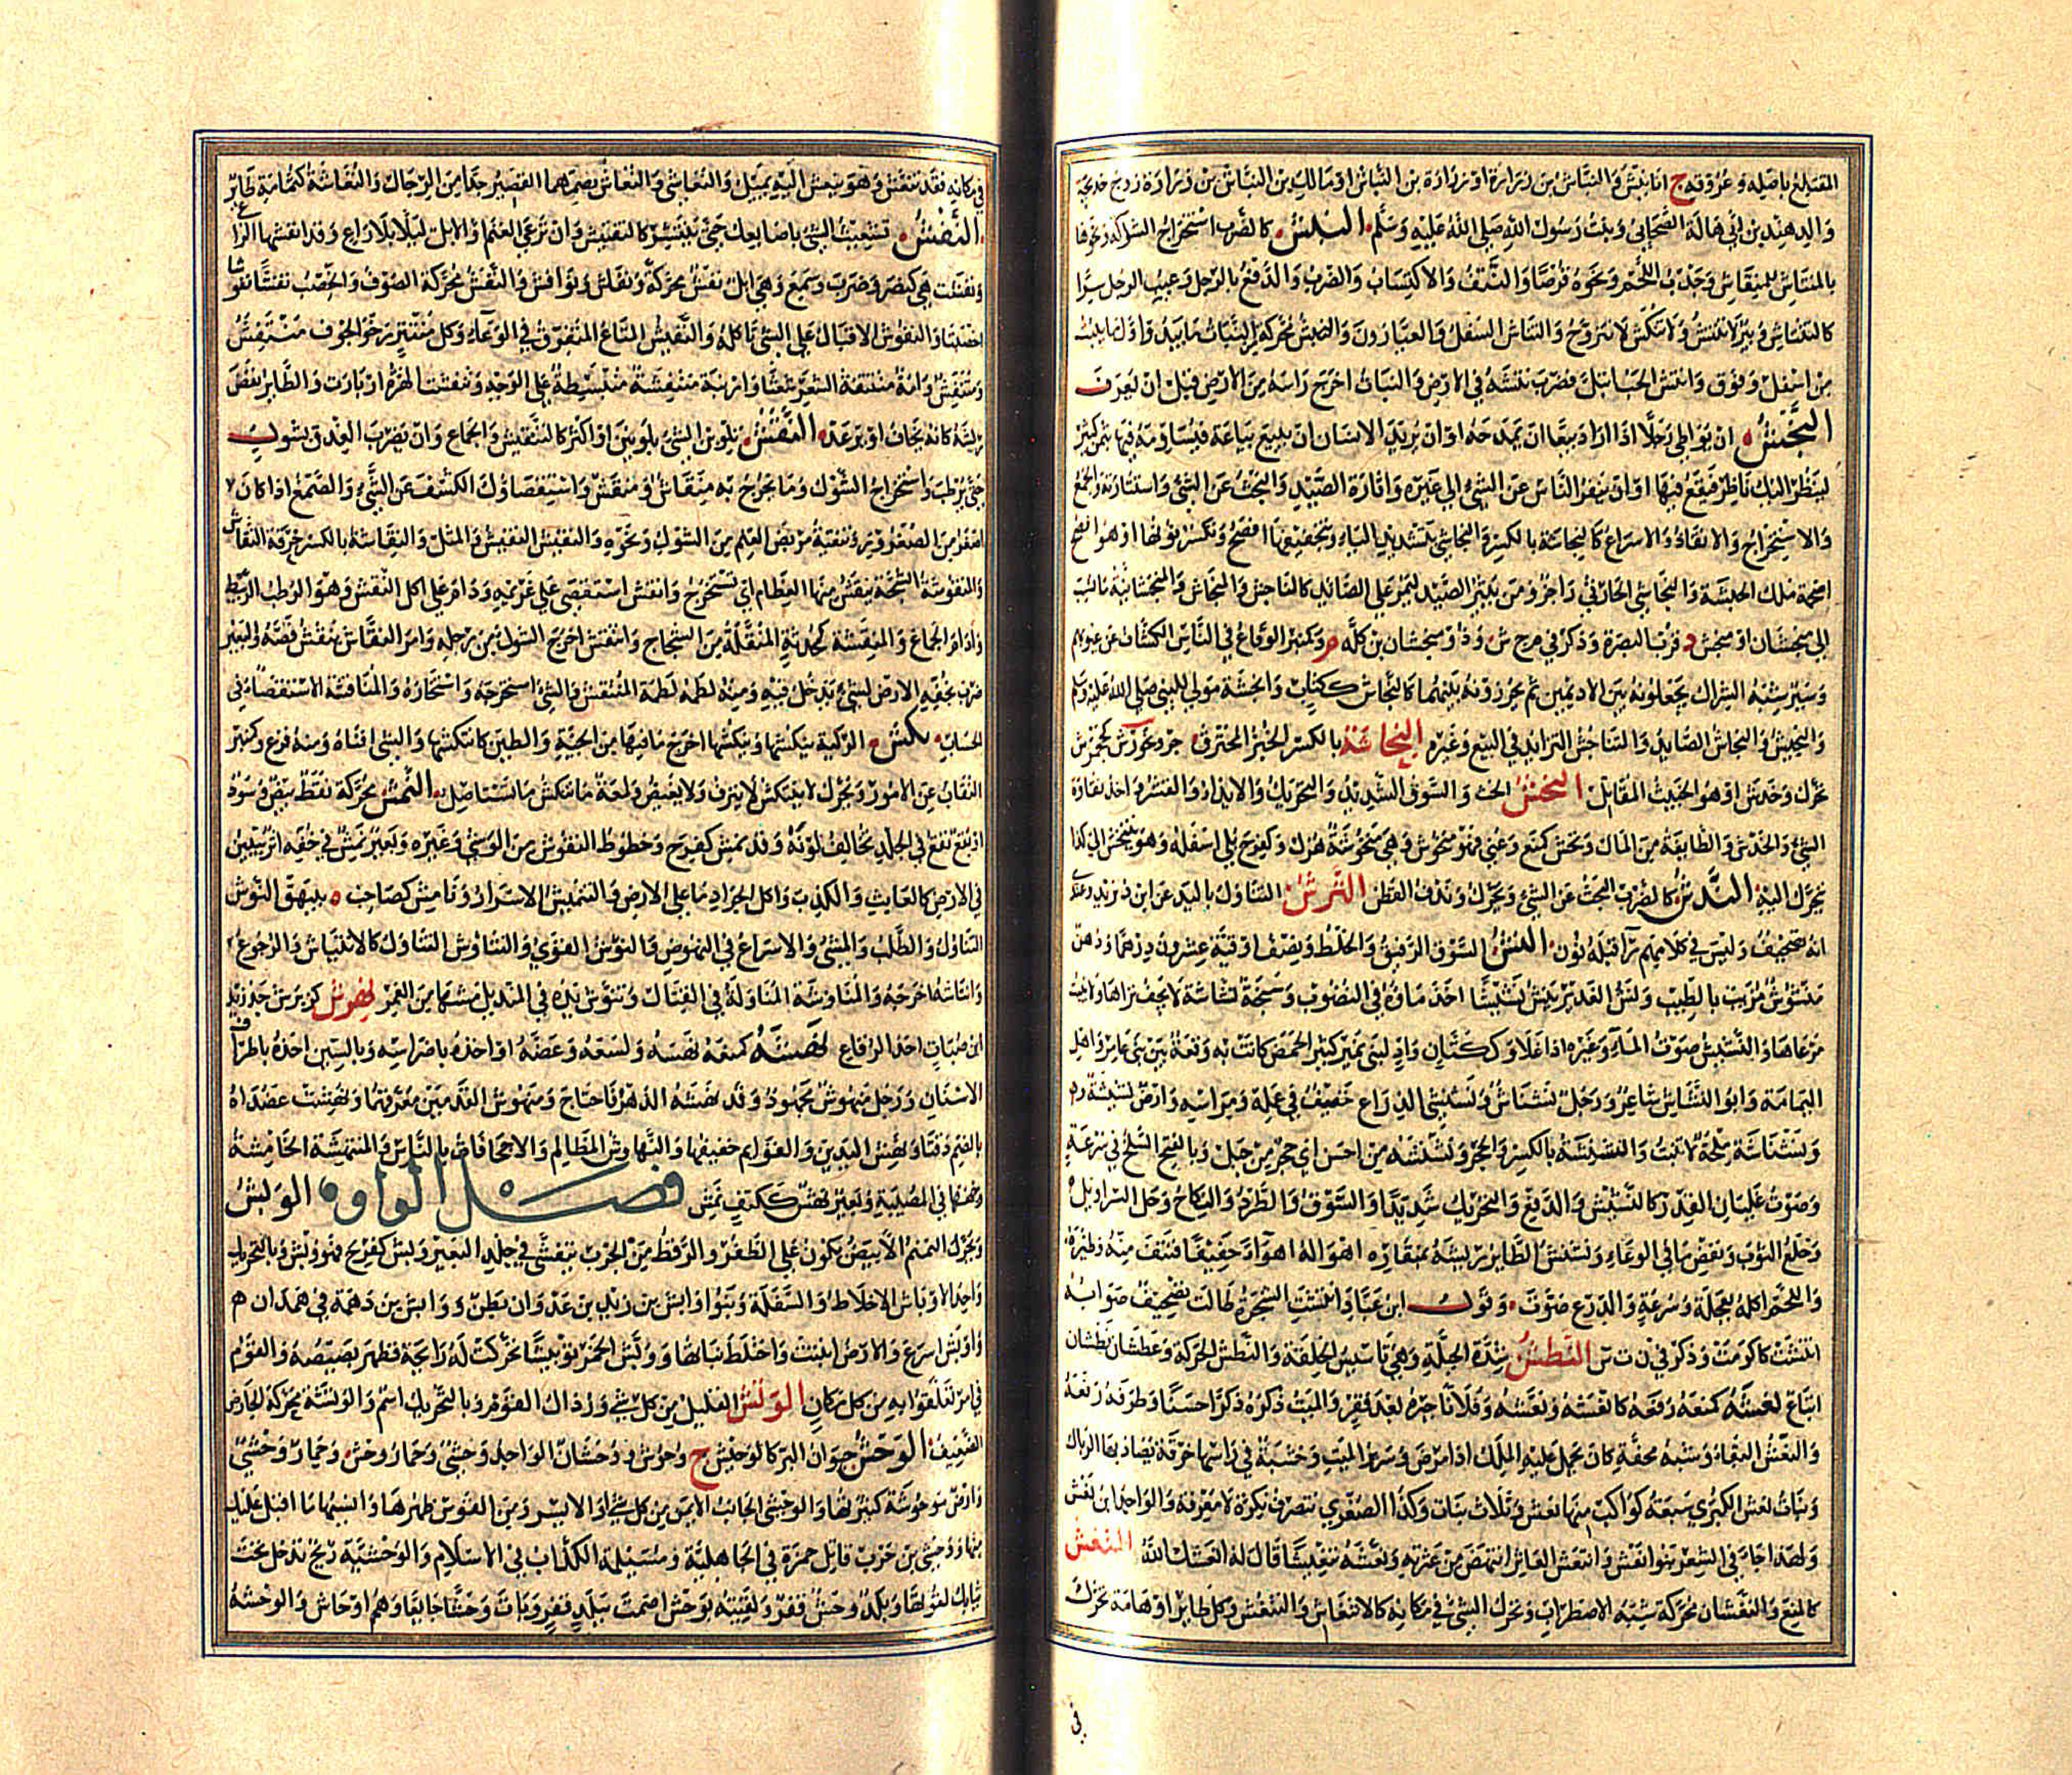 المقتلع باصله وعروقه ج انابيش والنباش بن زرارة او زرارة بن النباش او مالك بن النباش بن زرارة زوج خديجة
والد هند بن ابي هالة الصحابي وبنت رسول الله صلى الله عليه وسلم النتش كالضرب استخراج الشوكة ونحوها
بالمنتاش للمنقاش وجذب اللحم ونحوه قرصا والنتف والاكتساب والضرب والدفع بالرجل وعيب الرجل سرا
كالتنتاش وبئر لا تنتش ولا تنكش لا تنزح والنتاش السفل والعيارون والنتش محركة من النبات ما يبدو اول ما ينبت
من اسفل وفوق وانتش الحب ابتل فضرب نتشه في الارض والنبات اخرج راسه من الارض قبل ان يعرف
النجش ان تواطئ رجلا اذا اراد بيعا ان تمدحه او ان يريد الانسان ان يبيع بياعة فتساومه فيها بثمن كثير
لينظر اليك ناظر فيقع فيها او ان ينفر الناس عن الشئ الى غيره واثارة الصيد والبحث عن الشئ واستثارته والجمع
والاستخراج والانقاد والاسراع كالنجاشة بالكسرة والنجاشي بتشديد الياء وبتخفيفها افصح وتكسر نونها او هو افصح
اصحمة ملك الحبشة والنجاشي الحارثي راجز ومن يثير الصيد ليمر على الصائد كالناجش والنجاش والمنجشانية ماء نسب
الى منجشان او منجش د قرب البصرة وذكر في م ج ش وذو منجشان بن كلة م وكمنبر الوقاع في الناس الكشاف عن عيوبهم
وسير شبه الشراك يجعلونه بين الاديمين ثم يخرزونه بينهما كالنجاش ككتاب وانجشة مولى للنبي صلى الله عليه وسلم
والنجيش والنجاش الصايد والتناجش التزايد في البيع وغيره النحاشة بالكسر الخبز المحترق جرو نخورش كجحمرش
تحرك وخدش او هو الخبيث المقاتل النخش الحث والسوق الشديد والتحريك والايذاء والقشر واخذ نقاوة
الشئ والخدش والطايفة من المال ونخش كمنع وعني فهو منخوش وهي منخوشة هزل وكفرح بلي اسفله وهو يتنخش الى كذا
يتحرك اليه الندش كالضرب البحث عن الشئ ونحرك وندف القطن النرش التناول باليد عن ابن دريد وعندي
انه تصحيف وليس في كلامهم راء قبله نون النش السوق الرفيق والخلط ونصف اوقية عشرون درهما ودهن
منشوش مربب بالطيب ونش الغدير ينش نشيشا اخذ ماؤه في النضوب وسبخة نشاشة لا يجف ثراها ولا ينبت
مرعاها والنشيش صوت الماء وغيره اذا غلا وككتان واد لبني نمير كثير الحمض كانت به وقعة بين بني عامر واهل
اليمامة وابو النشاش شاعر ورجل نشناش ونشنشي الذراع خفيف في عمله ومراسه وارض نشيشة
ونشناشة ملحة لا تنبت والنشنشة بالكسر الحجر ونشنشة من اخشن اي حجر من جبل وبالفتح السلخ في سرعة
وصوت غليان القدر كالنشيش والدفع والتحريك شديدا والسوق والطرد والنكاح وحل السراويل
وخلع الثوب ونفض ما في الوعاء ونشنش الطاير ريشه بمنقاره اهوى له اهواء خفيفا فنتف منه وطيره
واللحم اكله بعجلة وسرعة والدرع صوت وقول ابن عباد انتشت الشجرة طالت تصحيف صوابه
انتشت كاكرمت وذكر في ن ت ش النطش شدة الجبلة وهي تاسيس الخلقة والنطش الحركة وعطشان نطشان
اتباع نعشه كمنعه رفعه كانعشه ونعشه وفلانا جبره بعد فقر والميت ذكره ذكرا حسنا وطرفه رفعه
والنعش البقاء وشبه محفة كان يحمل عليه الملك اذا مرض وسرير الميت وخشبة في راسها خرقة يصاد بها الرئال
وبنات نعش الكبرى سبعة كواكب منها نعش وثلاث بنات وكذا الصغرى تنصرف نكرة لا معرفة والواحد ابن نعش
ولهذا جاء في الشعر بنو نعش وانتعش العاثر انتهض من عثرته ونعشه تنعيشا قال له نعشك الله النغش
كالمنع والنغشان محركة شبه الاضطراب وتحرك الشئ في مكانه كالانتغاش والتنغش وكل طاير او هامة تحرك
في
في مكانه فقد تنغش وهو ينغش اليه يميل والنغاشي والنغاش بضمهما القصير جدا من الرجال والنغاشة كثمامة طاير
النفش تشعيث الشئ باصابعك حتى ينتشر كالتنفيش وان ترعى الغنم او الابل ليلا بلا راع وقد انفشها الراعي
ونفشت هي كنصر وضرب وسمع وهي ابل نفش محركة ونفاش ونوافش والنفش محركة الصوف والخصب نفشا نفوشا
اخصبنا والنفوش الاقبال على الشئ تاكله والنفيش المتاع المتفرق في الوعاء وكل منتبر رخو الجوف منتفش
ومتنفش وامة منتفشة الشعر شعثا وارنبة منتفشة منبسطة على الوجه وتنفشت الهرة ازبارت والطاير نفض
ريشه كانه يخاف او يرعد النقش تلوين الشئ بلونين او اكثر كالتنقيش والجماع وان يضرب العذق بشوك
حتى يرطب واستخراج الشوك وما يخرج به منقاش ومنقش واستقصاؤك الكشف عن الشئ والصمغ اذا كان
اصغر من الصعرور وتنقية مربض الغنم من الشوك ونحوه والنقيش النفيش والمثل والنقاشة بالكسر حرفة النقاش
والمنقوشة الشجة ينقش منها العظام اي تستخرج وانقش استقصى على غريمه وداوم على اكل النقش وهو الرطب الربيط
وادام الجماع والمنقشة كمحدثة المنقلة من الشجاج وانتقش اخرج الشوك من رجله وامر النقاش بنقش فصه والبعير
ضرب بخفه الارض لشئ يدخل فيه ومنه لطمه لطمة المنتقش والشئ استخرجه واستخاره والمناقشة الاستقصاء في
الحساب نكش الركية ينكشها وينكشها اخرج ما فيها من الجيئة والطين كانتكشها والشئ افناه ومنه فرغ وكمنبر
النقاب عن الامور وبحرك لا ينكش لا ينزف ولا يغيض ولمعة ما تنكش ما تستاصل النمش محركة نقط بيض وسود
او بقع تقع في الجلد تخالف لونه وقد نمش كفرح وخطوط النقوش من الوشي وغيره وبعير نمش في خفه اثر يتبين
في الارض كالعابث والكذب واكل الجراد ما على الارض والتنميش الاسرار ونامش كصاحب ة ببيهق النوش
التناول والطلب والمشي والاسراع في النهوض والنوش القوي والتناوش التناول كالانتياش والرجوع
وانتاشه اخرجه والمناوشة المناولة في القتال وتنوش يده في المنديل مشها من الغمر نهرش كزبرج جد زيد
ابن ضباث احد الرقاع نهشه كمنعه نهسه ولسعه وعضه او اخذه باضراسه وبالسين اخذه باطراف
الاسنان ورجل منهوش مجهود وقد نهشه الدهر فاحتاج ومنهوش القدمين معرقهما ونهشت عضداه
بالضم دقتا ونهش اليدين والقوايم خفيفها والنهاوش المظالم والاجحافات بالناس والمنتهشة الخامشة
وجهها في المصيبة وبعير نهش ككتف نمش فصل الواو الوبش
ويحرك النمنم الابيض يكون على الظفر والرقط من الجرب يتفشى في جلد البعير وبش كفرح فهو وبش وبالتحريك
واحد الاوباش الاخلاط والسفلة وبنو وابش بن زيد بن عدوان بطن ووابش بن دهمة في همدان هم
واوبش اسرع والارض انبتت واختلط نباتها ووبش الجمر توبيشا تحركت له رايحة فظهر بصيصه والقوم
في امر تعلقوا به من كل مكان الوتش القليل من كل شئ ورذال القوم وبالتحريك اسم والوتشة محركة الحارض
الضعيف الوحش حيوان البر كالوحيش ج وحوش ووحشان الواحد وحشي وحمار وحش وحمار وحشي
وارض موحوشة كثيرتها والوحشي الجانب الايمن من كل شئ او الايسر ومن القوس ظهرها وانسيها ما اقبل عليك
منها ووحشي بن حرب قاتل حمزة في الجاهلية ومسيلمة الكذاب في الاسلام والوحشية ريح تدخل تحت
ثيابك لقوتها وبلد وحش قفر ولقيته بوحش اصمت ببلد قفر وبات وحشا جايعا وهم اوحاش والوحشة